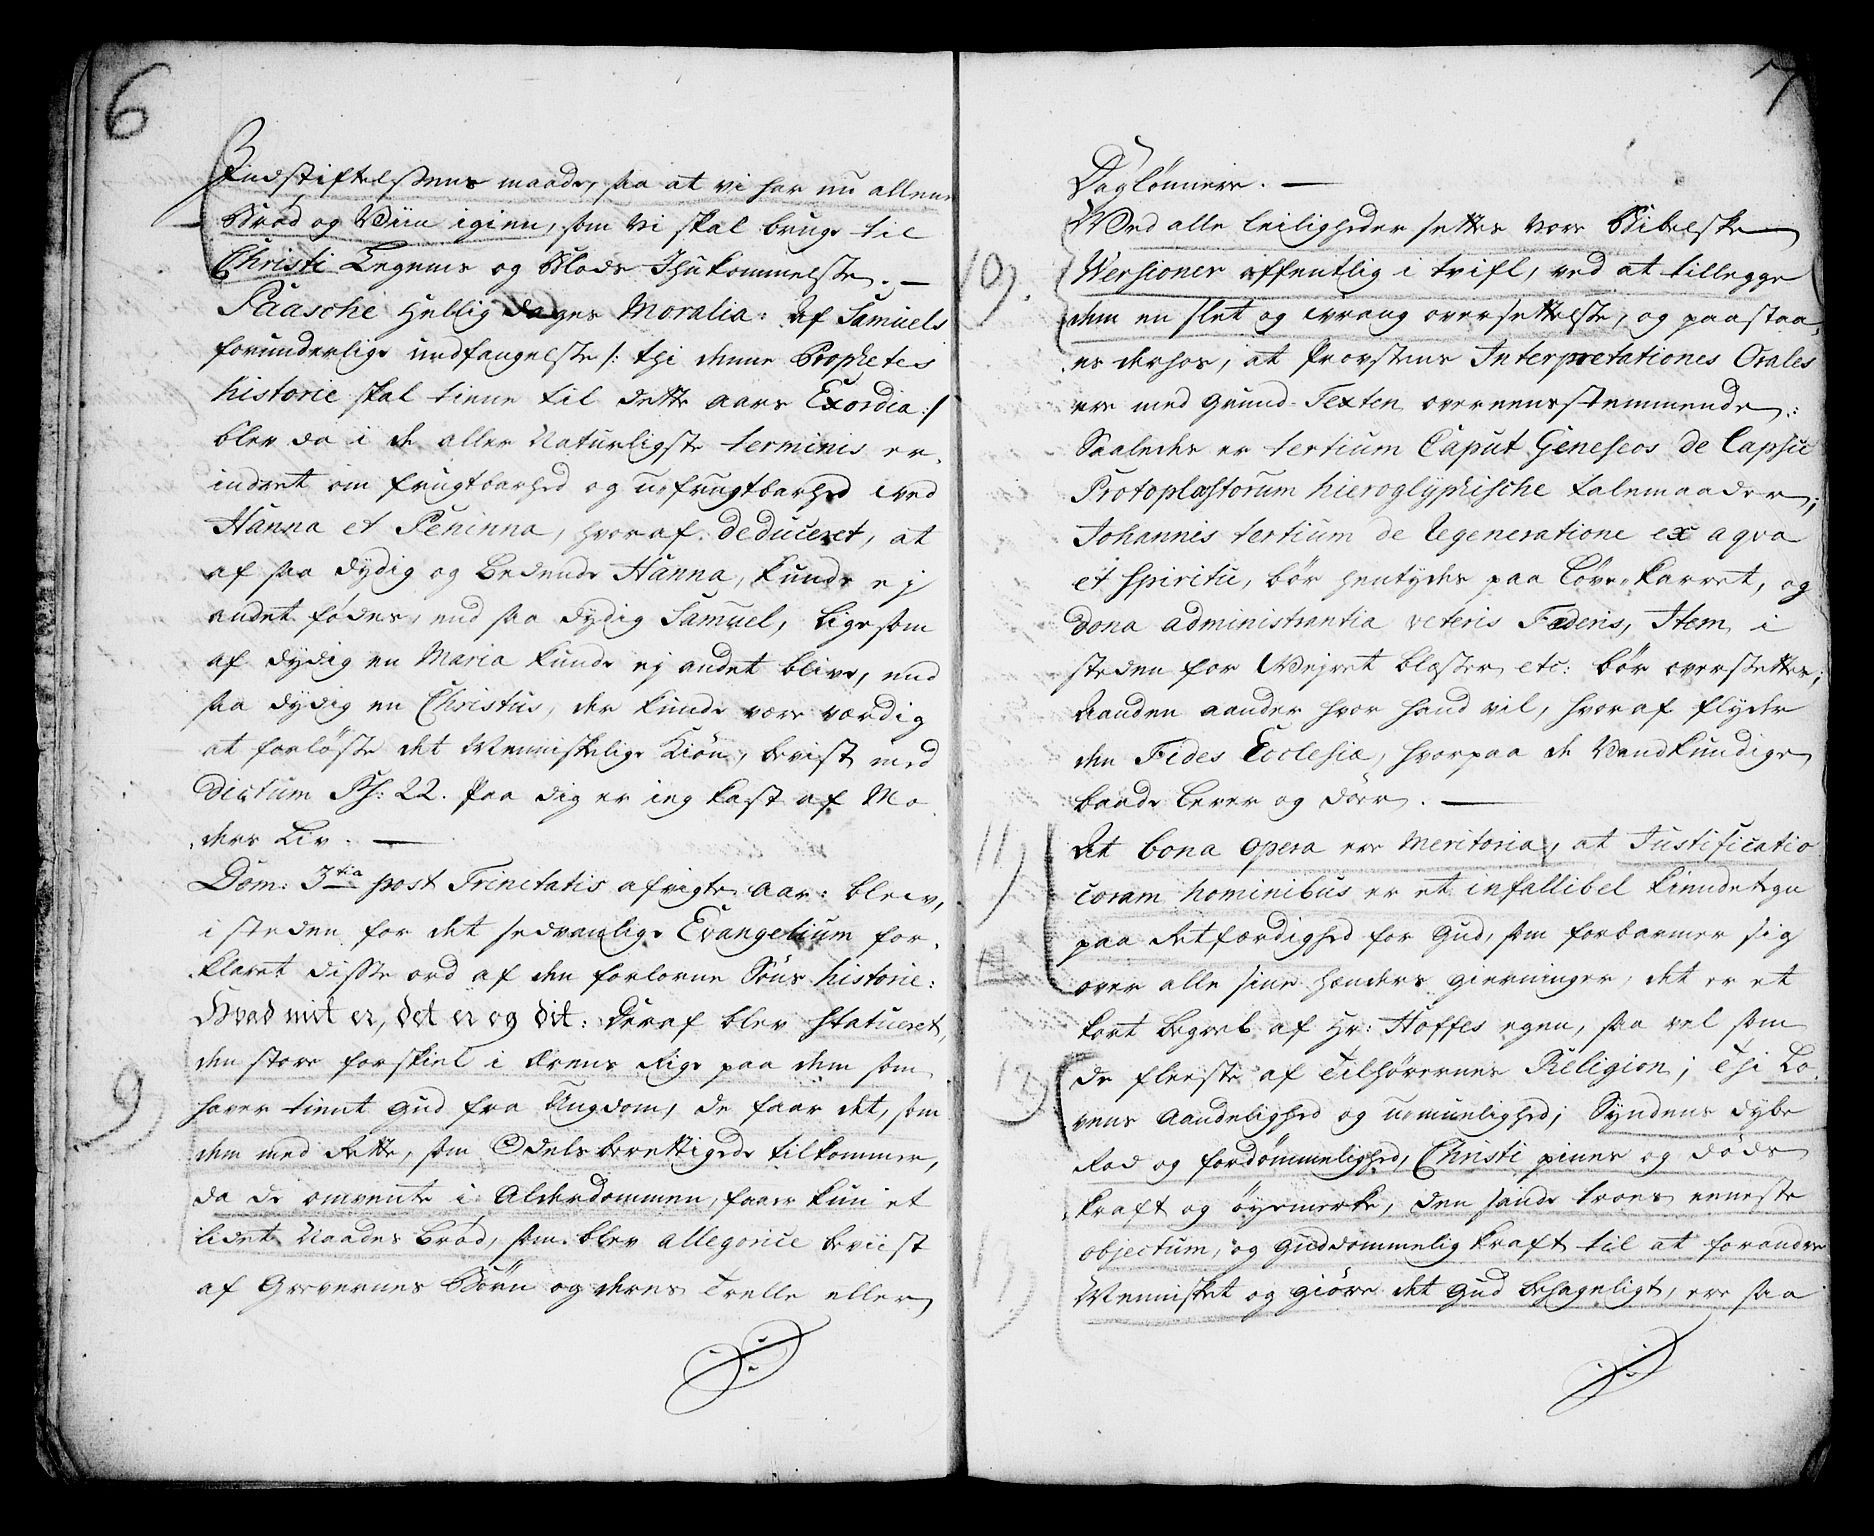 6
Indstiftelsens maade, saa at vi har nu allene
Brød og Viin igien, som vi skal bruge til
Christi Legems og Blods Ihukommelse. —
Paasche Hellig Dages Moralia: af Samuels
forunderlige undfangelse /: thi denne Prophetes
historie skal tiene til dette aars Exordia :/
blev da i de aller Naturligste terminis er-
indret om frugtbarhed og ufrugtbarhed ved
Hanna et Peninna, hvoraf deduceret, at
af saa dydig og bedende Hanna, kunde ej
andet fødes, end saa dydig Samuel, ligesom
af dydig en Maria kunde ej andet blive, end
saa dydig en Christus, der kunde være værdig
at forløse det Menniskelige Kiøn, bevist med
Dictum Ps: 22. Paa dig er ieg kast af Mo-
ders Liv. —
Dom: 3tia post Trinitatis afvigte aar: blev,
i steden for det sedvanlige Evangelium for-
klaret disse ord af den forlorne Søns historie:
Hvad mit er, det er og dit: Deraf blev statueret,
9)
den store forskiel i Ærens Rige paa dem som
haver tient Gud fra Ungdom, de faar det, som
dem med Rette, som Odelsberettigede tilkommer,
da de omvendte i Alderdommen, faaer kun et
lidet Naades Brød, som blev allegorice beviist
af Grevernes Børn og deres Trelle eller
7
Daglønnere. —
Ved alle leiligheder settes vore Bibelske
10)
Versioner offentlig i tvifl, ved at tillegge
dem en slet og vrang oversettelse, og paastaa-
es derhos, at Provstens Interpretationes Orales
ere med Grund-Texten overeensstemmende:
Saaledes er tertium Caput Geneseos de Lapsu
Protoplastorum hieroglyphische talemaader;
Johannis tertium de Regeneratione ex aqva
et spiritu, bør hentydes paa Løve-karret, og
dona administrantia veteris Fæderis, Item i
steden for Vejret blæser etc: bør oversettes;
Aanden aander hvor hand vil, hvoraf flyder
den Fides Ecclesiæ, hvorpaa de Vandkundige
baade lever og døer. —
11)
At bona opera ere Meritoria, at Justificatio
coram hominibus er et infallibel kiendetegn
paa Retfærdighed for Gud, som forbarmer sig
over alle sine hænders gierninger, det er et
kort begreb af Hr: Hoffes egen, saa vel som
12)
de fleeste af Tilhørernes Religion; Thi Lo-
vens Aandelighed og umuelighed; Syndens dybe
Rod og fordømmelighed, Christi pines og døds
kraft og øyemerke, den sande troes eeneste
objectum, og Guddommelig kraft til at forandre
Mennisket og giøre det Gud behageligt, ere saa